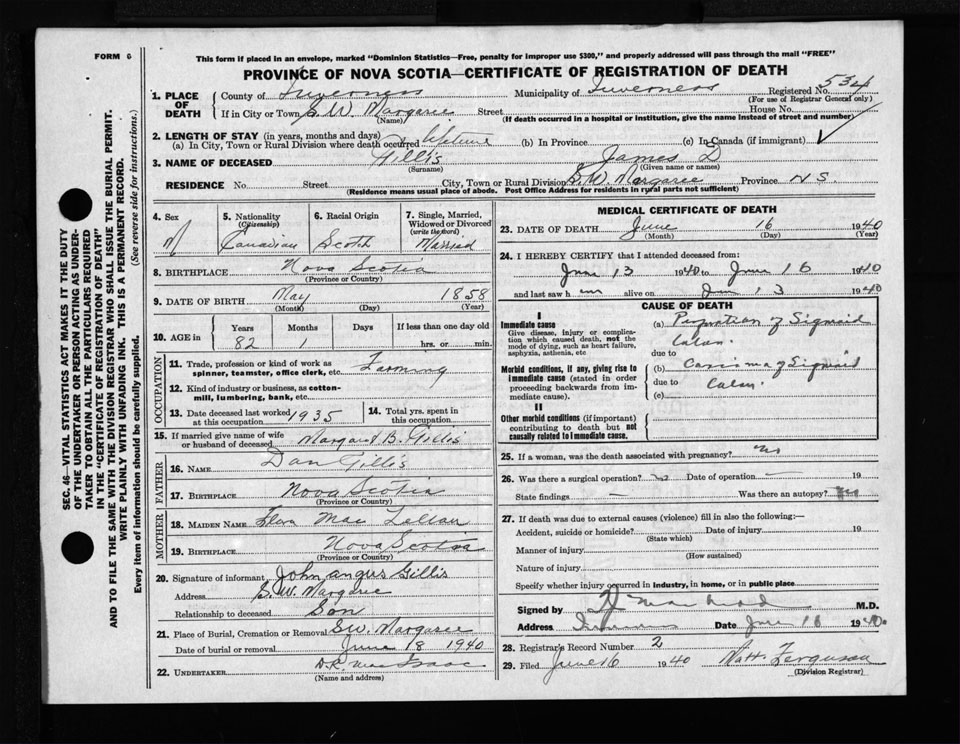 FORM 6
This form if placed in an envelope, marked "Dominion Statistics—Free, penalty for improper use $300," and properly addressed will pass through the mail "FREE"
PROVINCE OF NOVA SCOTIA—CERTIFICATE OF REGISTRATION OF DEATH
1. PLACE OF DEATH
County of Inverness Municipality of Inverness Registered No. 534
(For use of Registrar General only)
If in City or Town S.W. Margaree Street House No.
(Name) (If death occurred in a hospital or institution, give the name instead of street and number)
2. LENGTH OF STAY (in years, months and days)
(a) In City, Town or Rural Division where death occurred lifetime (b) In Province (c) In Canada (if immigrant)
3. NAME OF DECEASED Gillis James D
(Surname) (Given name or names)
RESIDENCE No. Street City, Town or Rural Division S.W. Margaree Province N.S.
(Residence means usual place of abode. Post Office Address for residents in rural parts not sufficient)
4. Sex M
5. Nationality (Citizenship) Canadian
6. Racial Origin Scotch
7. Single, Married, Widowed or Divorced (write the word) Married
8. BIRTHPLACE Nova Scotia
(Province or Country)
9. DATE OF BIRTH May 1858
(Month) (Day) (Year)
10. AGE in Years 82 Months 1 Days If less than one day old hrs. or min.
OCCUPATION
11. Trade, profession or kind of work as spinner, teamster, office clerk, etc. Farming
12. Kind of industry or business, as cotton-mill, lumbering, bank, etc.
13. Date deceased last worked at this occupation 1935
14. Total yrs. spent in this occupation
15. If married give name of wife or husband of deceased Margaret B. Gillis
FATHER
16. NAME Dan Gillis
17. BIRTHPLACE Nova Scotia
(Province or Country)
MOTHER
18. MAIDEN NAME Mac Lellan
19. BIRTHPLACE Nova Scotia
(Province or Country)
20. Signature of informant John Angus Gillis
Address S.W. Margaree
Relationship to deceased Son
21. Place of Burial, Cremation or Removal S.W. Margaree
Date of burial or removal June 18 1940
22. UNDERTAKER D.R. Mac Isaac
(Name and address)
MEDICAL CERTIFICATE OF DEATH
23. DATE OF DEATH June 16 1940
(Month) (Day) (Year)
24. I HEREBY CERTIFY that I attended deceased from:
June 13 1940 to June 16 1940
and last saw him alive on June 13 1940
CAUSE OF DEATH
I
Immediate cause
Give disease, injury or complication which caused death, not the mode of dying, such as heart failure, asphyxia, asthenia, etc
(a) Perforation of Sigmoid Colon.
due to
Morbid conditions, if any, giving rise to immediate cause (stated in order proceeding backwards from immediate cause).
(b) Carcinoma of Sigmoid
due to Colon.
(c)
II
Other morbid conditions (if important) contributing to death but not causally related to immediate cause.
25. If a woman, was the death associated with pregnancy? No
26. Was there a surgical operation? no Date of operation — 19
State findings — Was there an autopsy?
27. If death was due to external causes (violence) fill in also the following:—
Accident, suicide or homicide? Date of injury 19
(State which)
Manner of injury
(How sustained)
Nature of injury
Specify whether injury occurred in industry, in home, or in public place
Signed by M.D.
Address Inverness Date June 16 1940.
28. Registrar's Record Number 2
29. Filed June 16 1940 Ferguson
(Division Registrar)
SEC. 46—VITAL STATISTICS ACT MAKES IT THE DUTY
OF THE UNDERTAKER OR PERSON ACTING AS UNDER-
TAKER TO OBTAIN ALL THE PARTICULARS REQUIRED
IN THE "CERTIFICATE OF REGISTRATION OF DEATH"
AND TO FILE THE SAME WITH THE DIVISION REGISTRAR WHO SHALL ISSUE THE BURIAL PERMIT.
WRITE PLAINLY WITH UNFADING INK. THIS IS A PERMANENT RECORD.
Every item of information should be carefully supplied. (See reverse side for instructions.)